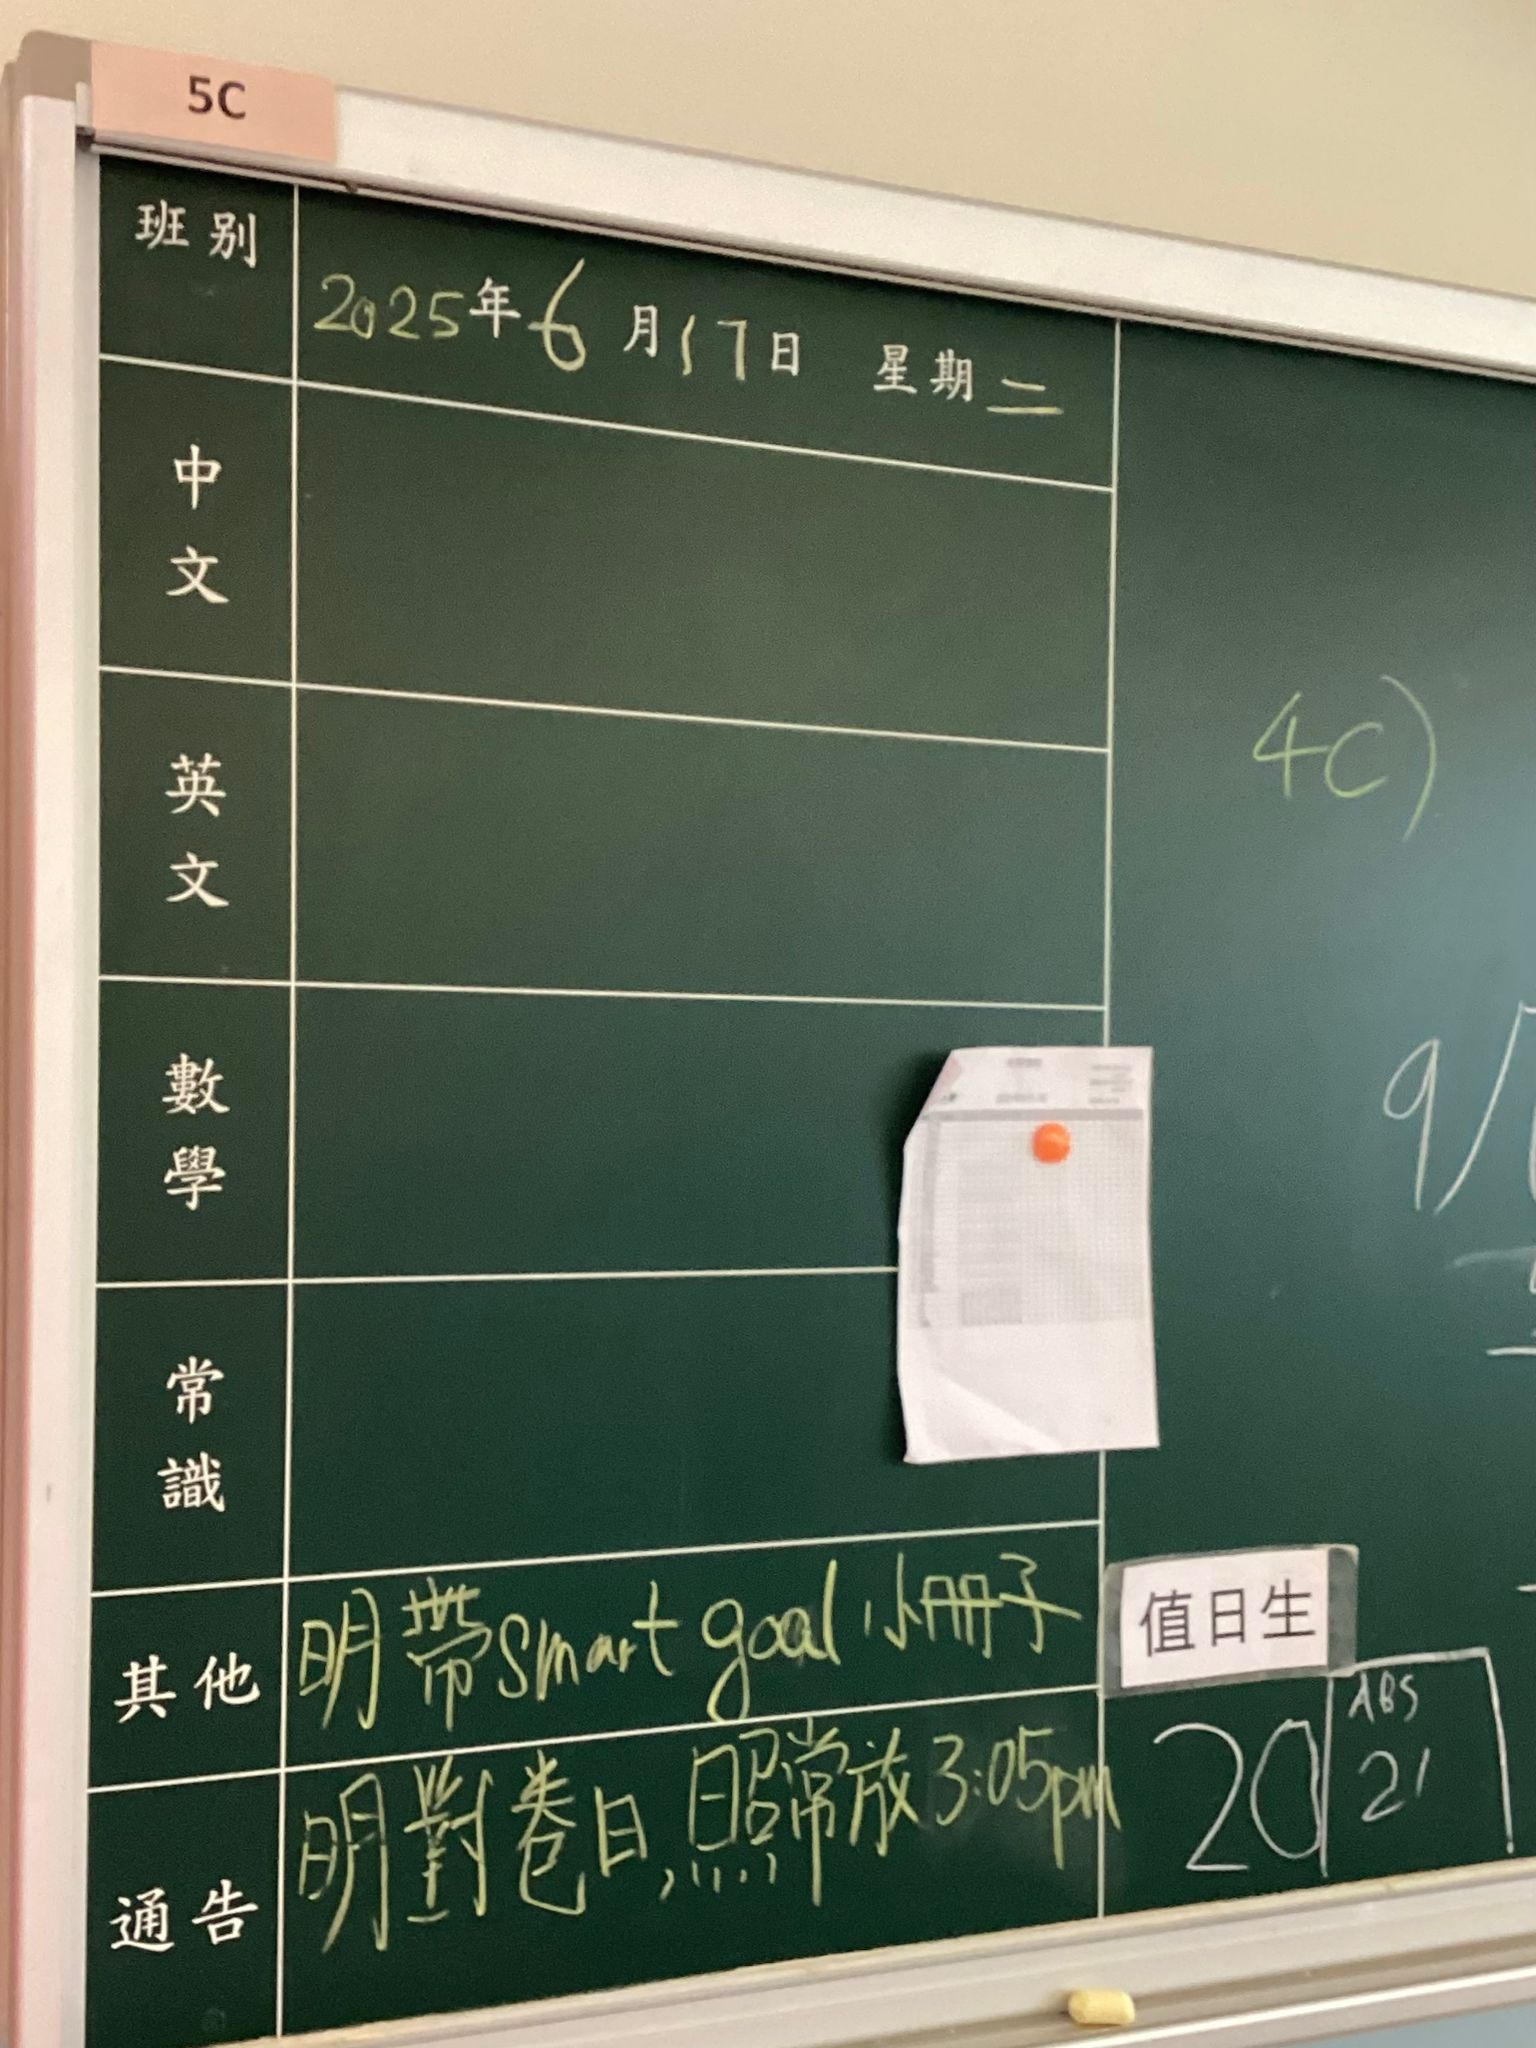 5C
班別
2025年6月17日 星期二
中文
英文
數學
常識
其他 明帶smart goal小冊子
通告 明對卷日,照常放3:05pm
4C)
9
值日生
20
ABS
21